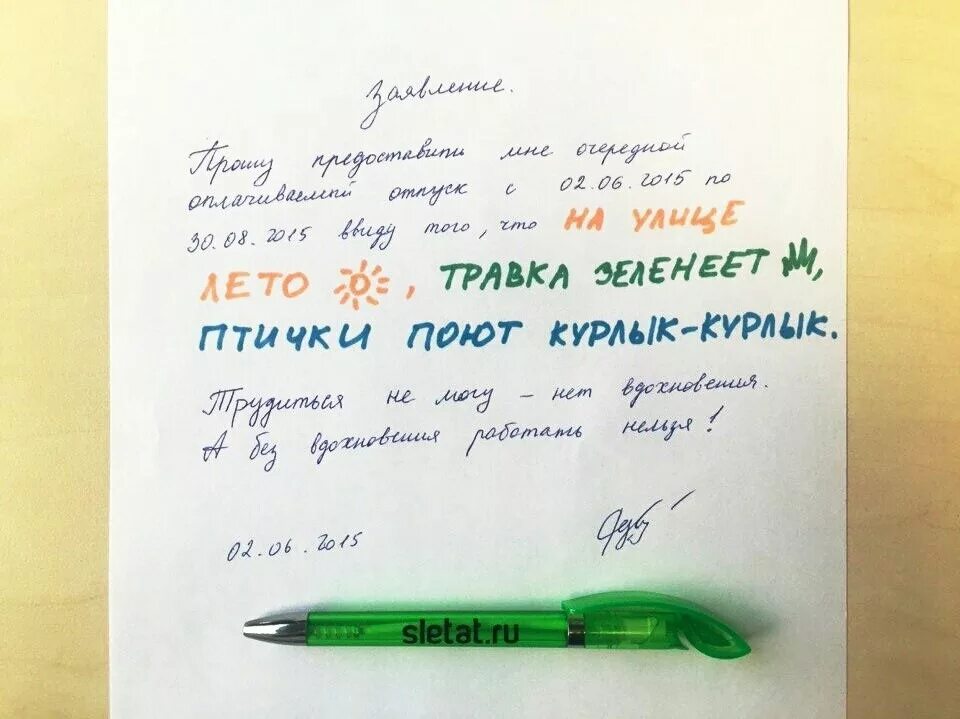 Заявление.
Прошу предоставить мне очередной
оплачиваемый отпуск с 02.06.2015 по
30.08.2015 ввиду того, что НА УЛИЦЕ
ЛЕТО , ТРАВКА ЗЕЛЕНЕЕТ ,
ПТИЧКИ ПОЮТ КУРЛЫК-КУРЛЫК.
Трудиться не могу – нет вдохновения.
А без вдохновения работать нельзя!
02.06.2015
sletat.ru